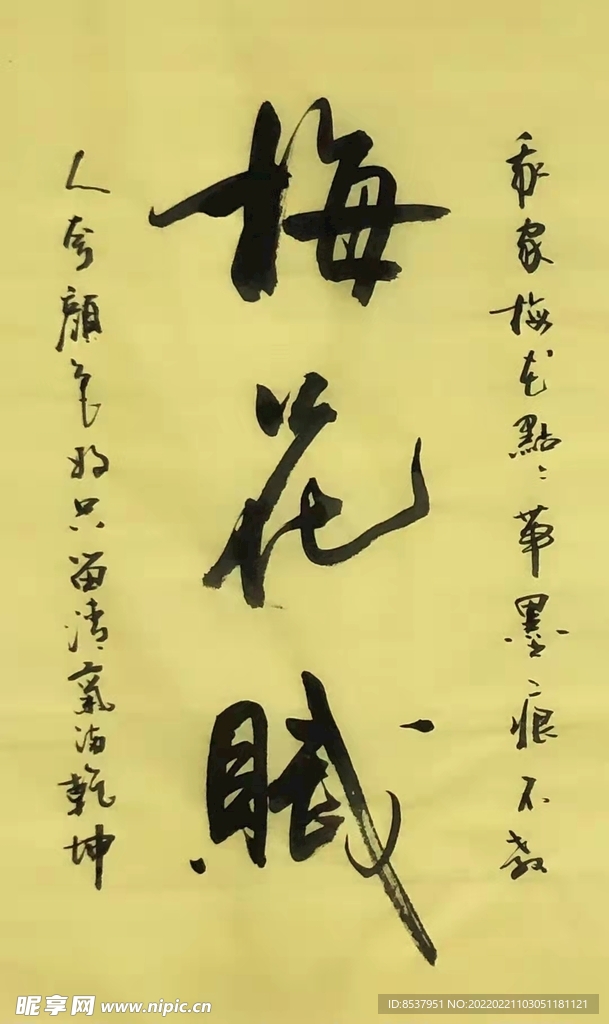 我家梅花點〻筆墨痕不教
梅花賦
人夸顏色好只留清氣滿乾坤
昵享网 www.nipic.cn
ID:8537951 NO:20220221103051181121